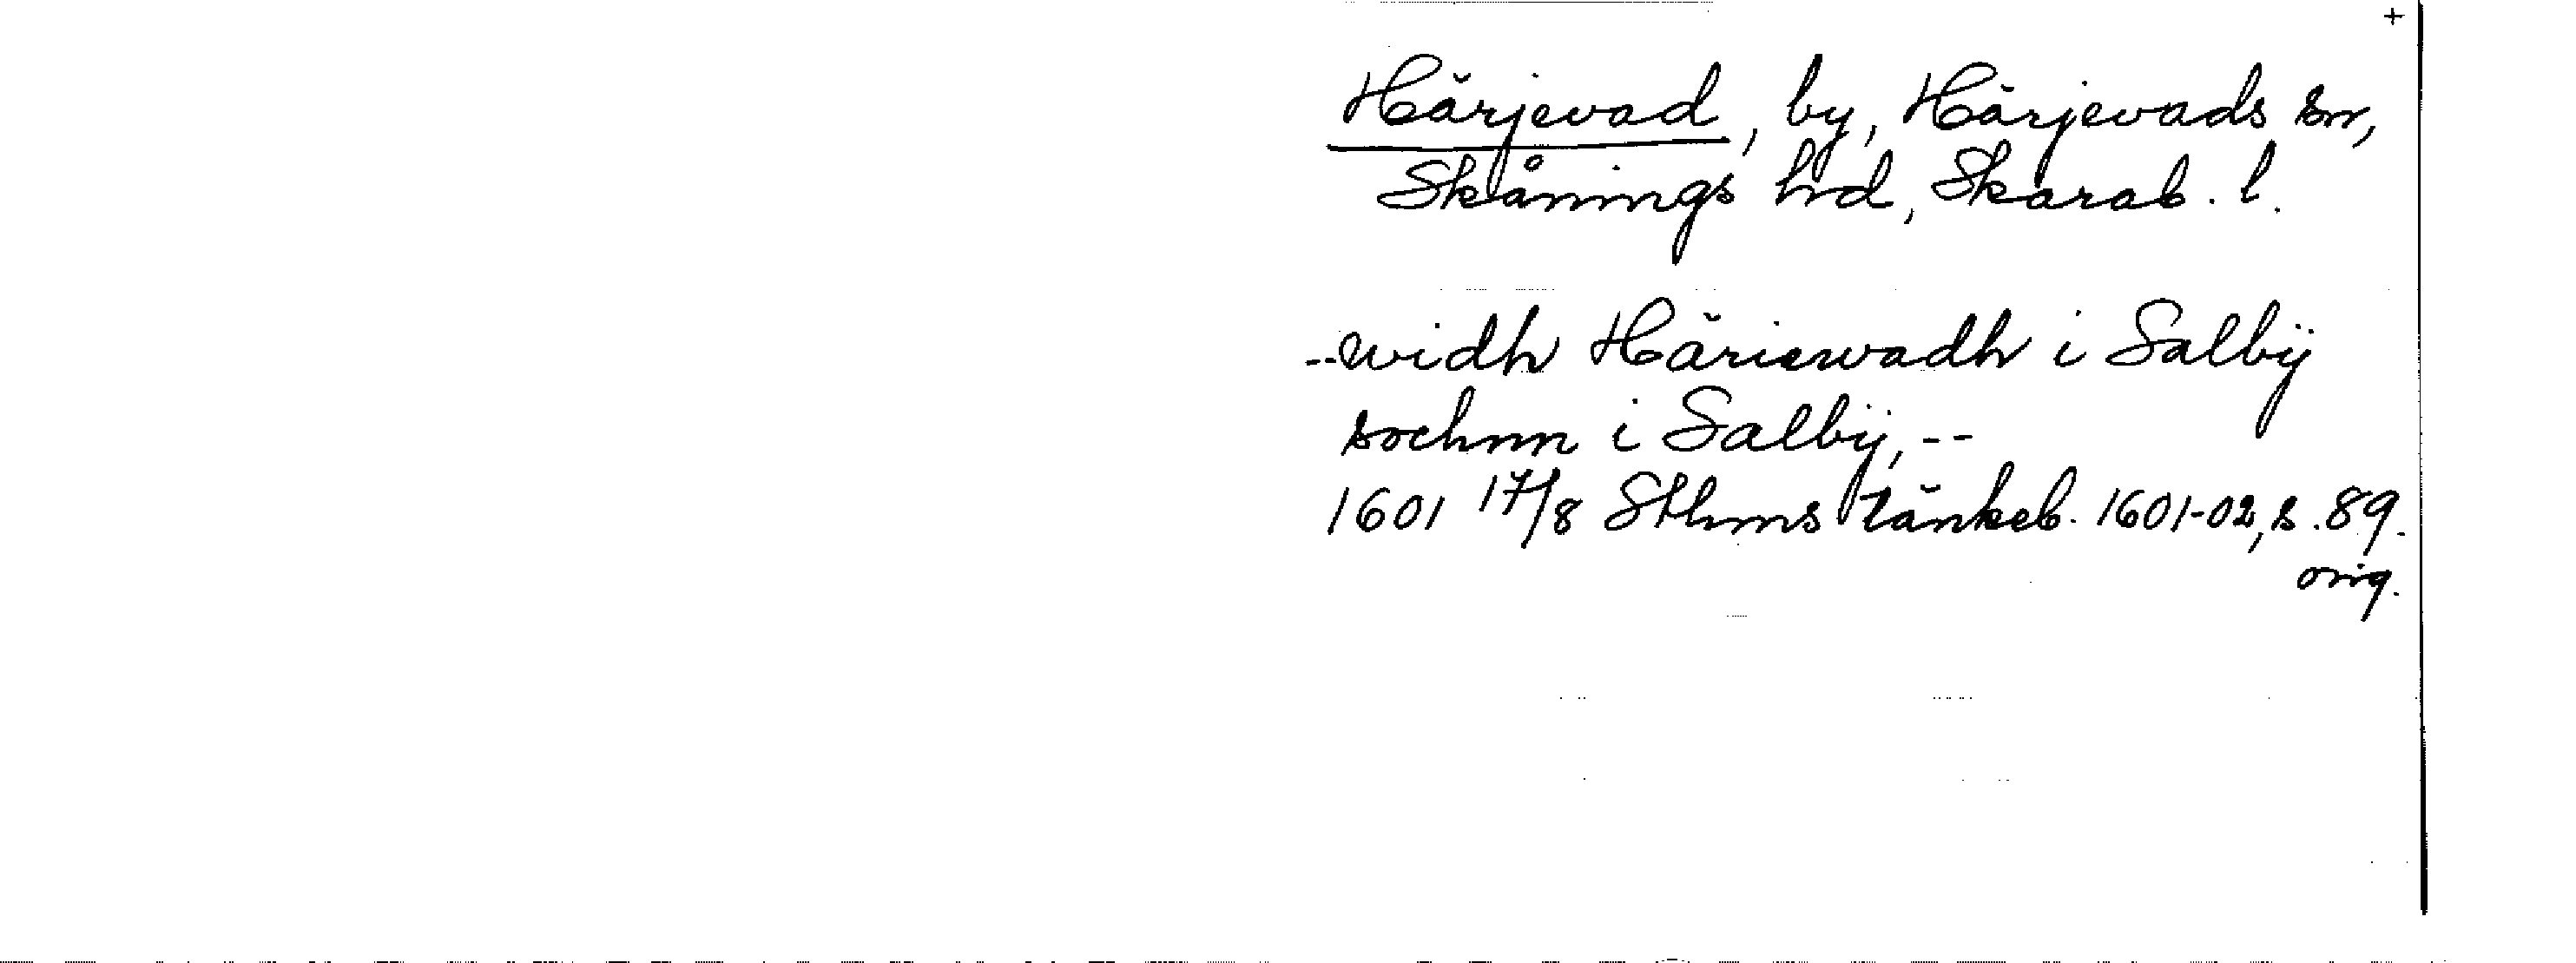 +
Härjevad, by, Härjevads sn,
Skånings hd, Skarab. l.
--widh Häriewadh i Salbÿ
sochnn i Salbÿ, --
1601 17/8 Sthms tänkeb. 1601-02, s. 89.
orig.